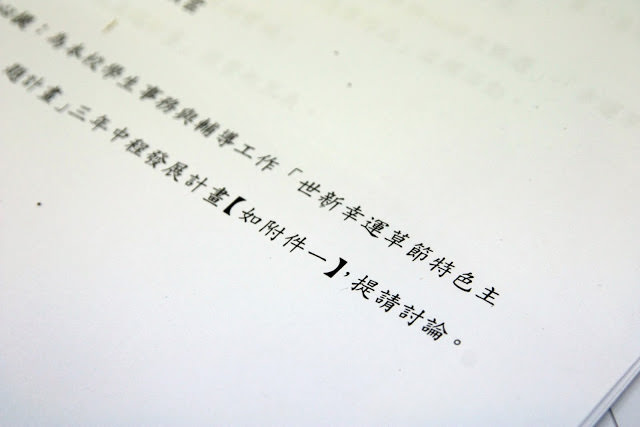 ：為本校學生事務與輔導工作「世新幸運草節特色主
題計畫」三年中程發展計畫【如附件一】，提請討論。